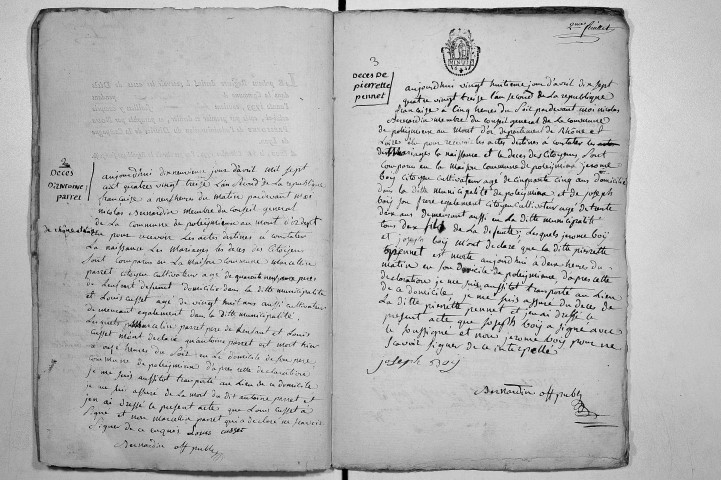 2
Deces
D'antoine
parret
aujourdhuy dix neuvieme jour davril mil sept
cent quatre vingt treize Lan second de la republique
francaise a neuf heures du matin pardevant moy
nicolas Bernardin membre du conseil general
de La commune de poleymieux au mont d'or dept
de rhône et loire
élu pour recevoir Les actes destinés a constater
La naissance Les Mariages et deces des Citoyens
Sont comparus en La Maison Commune Marcellin
parret Citoyen Cultivateur agé de quarante neuf ans pere
de Lenfant defunt domicilié dans la ditte municipalité
et Louis Casset agé de vingt huit ans aussi cultivateur
demeurant egalement dans la ditte municipalité
Lesquels Marcelin parret pere de Lenfant et Louis
Casset mont declaré quantoine parret est mort hier
a onze heures du Soir en Le domicile de son pere
Commune de poleymieux d'apres cette declaration
je me suis aussitot transporté au Lieu de ce domicile
je me suis assuré de La mort du dit antoine parret et
jen ai dressé Le present acte que Louis Casset a
signé et non marcellin parret qui a declaré ne scavoir
signer de ce enquis Louis Casset
Bernardin off publ
2me feuillet
3
Deces de
pierrette
pennet
aujourdhuy vingt huitieme jour d'avril mil sept
quatre vingt treize Lan second de la republique
francaise a Cinq heures du Soir pardevant moi nicolas
Bernardin membre du conseil general de La commune
de poleymieux au Mont d'or departement de Rhône et
Loire élu pour recevoir Les actes destinés a constater
des Mariages la naissance et le deces des Citoyens Sont
comparus en La Maison Commune de poleymieux jerome
boij citoyen Cultivateur agé de Cinquante cinq ans domicilié
dans la ditte municipalité de poleymieux et de joseph
boij son frere egalement citoyen Cultivateur agé de trente
deux ans demeurant aussi en La ditte municipalité
tous deux fils de La defunte, Lesquels jerome boij
et joseph boij Mont declaré que la ditte pierrette
pennet est morte aujourdhui à deux heures du
matin en son domicile de poleymieux d'apres cette
declaration je me suis aussitot transporté au Lieu
de ce domicile je me suis assuré du deces de
La ditte pierrette pennet et jen ai dressé Le
present acte que joseph boij a signé avec
le soussigné et non jerome boij pour ne
scavoir signer de ce interpellé
joseph boij
Bernardin off publ